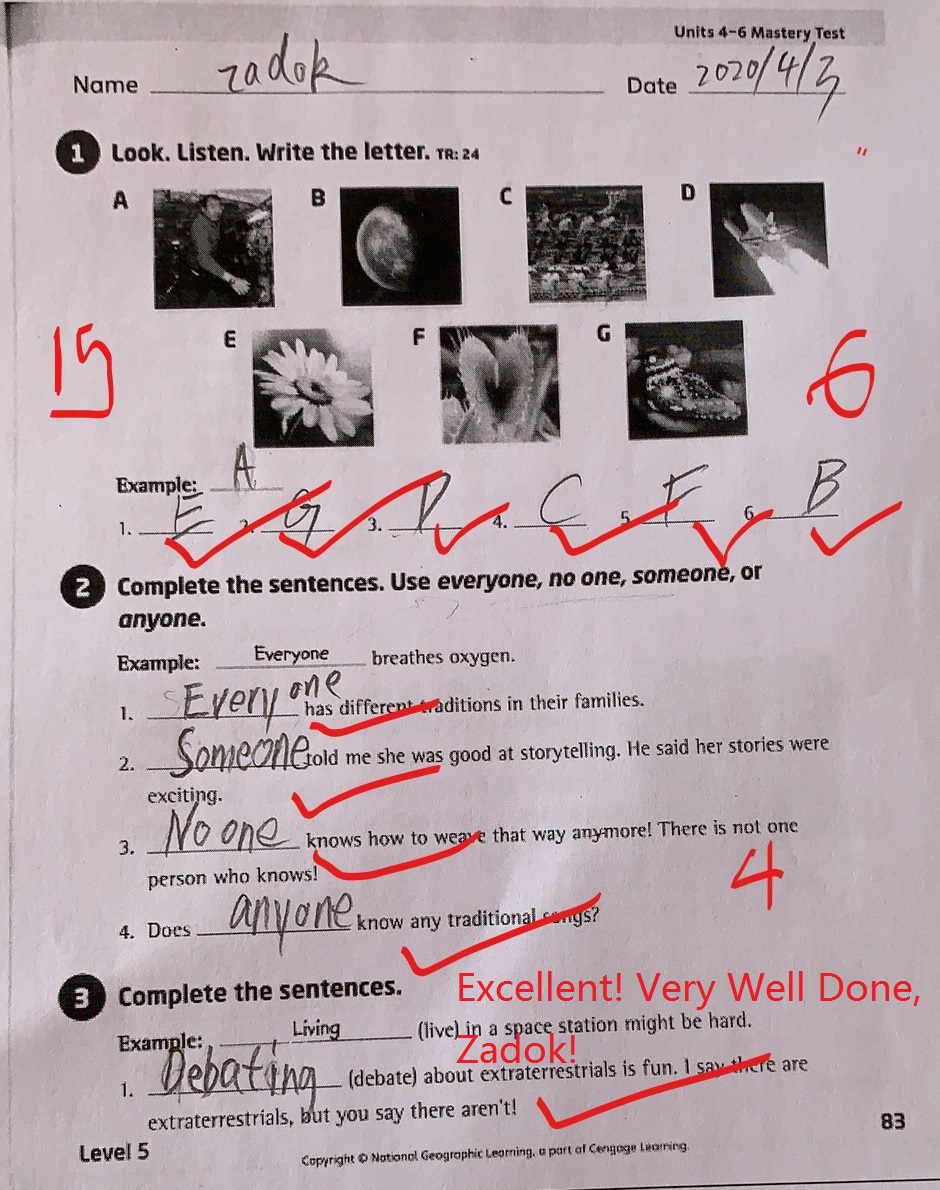 Units 4-6 Mastery Test
Name zadok Date 2020/4/3
1 Look. Listen. Write the letter. TR: 24
A B C D
E F G
15 6
Example: A
1. E 2. G 3. D 4. C 5. F 6. B
2 Complete the sentences. Use everyone, no one, someone, or
anyone.
Example: Everyone breathes oxygen.
1. Everyone has different traditions in their families.
2. Someone told me she was good at storytelling. He said her stories were
exciting.
3. No one knows how to weave that way anymore! There is not one
person who knows!
4
4. Does anyone know any traditional songs?
3 Complete the sentences.
Excellent! Very Well Done,
Zadok!
Example: Living (live) in a space station might be hard.
1. Debating (debate) about extraterrestrials is fun. I say there are
extraterrestrials, but you say there aren't!
83
Level 5
Copyright © National Geographic Learning, a part of Cengage Learning.